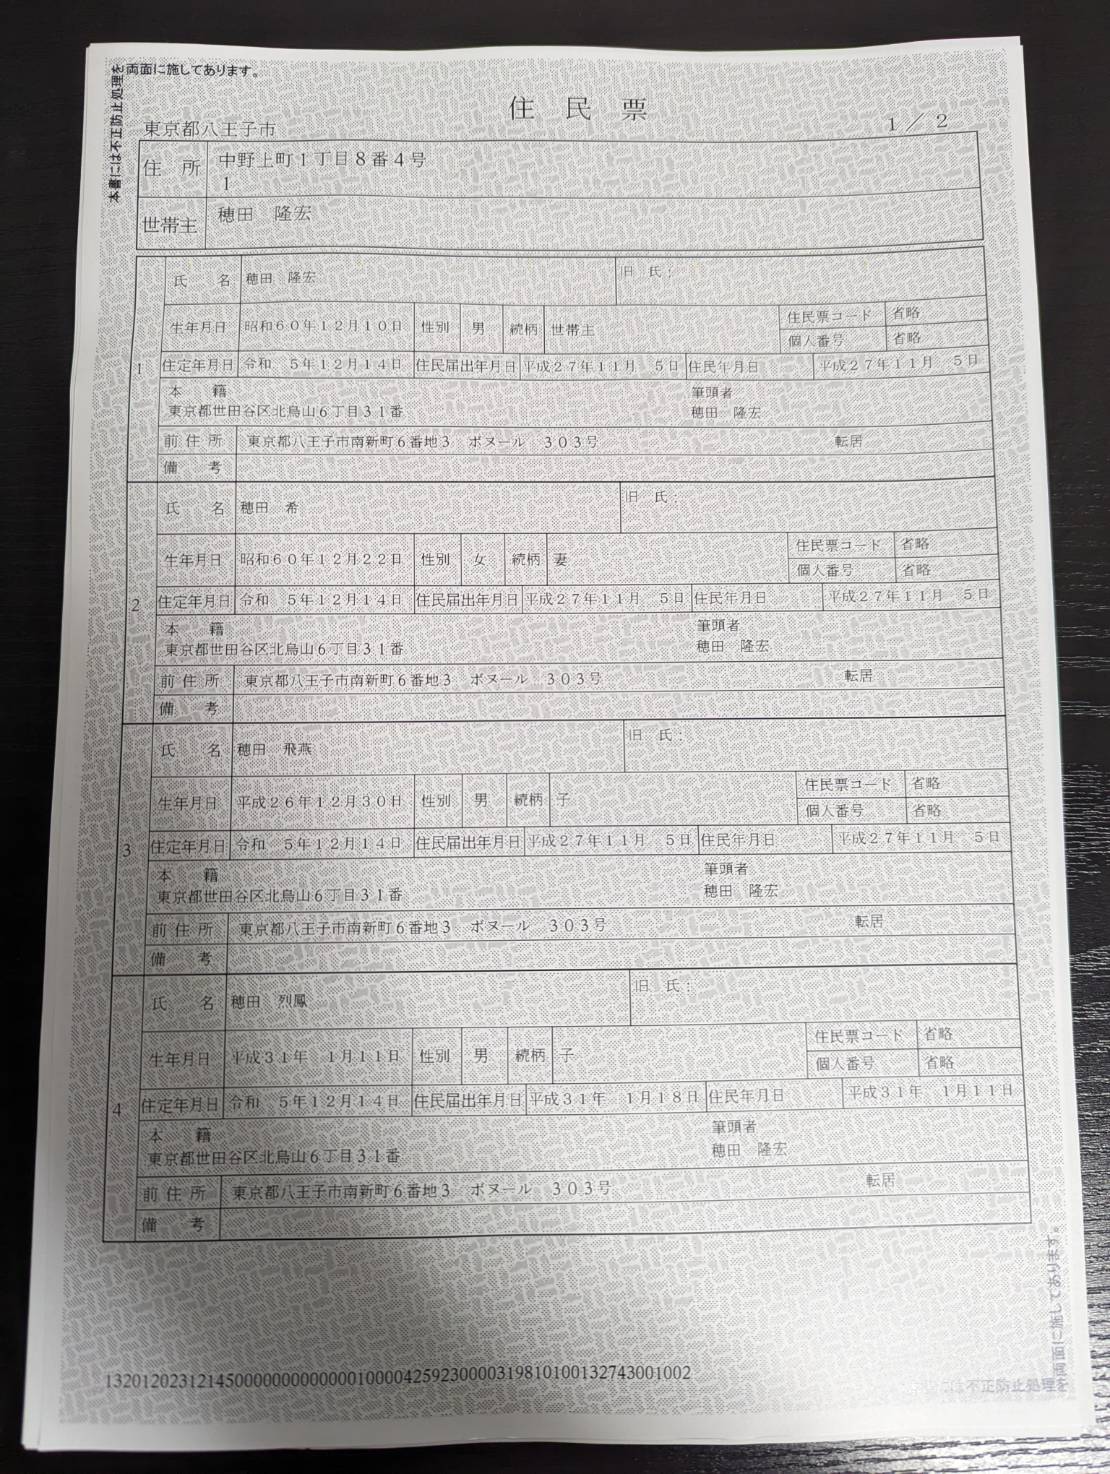 本書には不正防止処理を
両面に施してあります。
住民票
東京都八王子市
1／2
住所 中野上町1丁目8番4号
1
世帯主 穂田 隆宏
1
氏名 穂田 隆宏 旧氏：
生年月日 昭和60年12月10日 性別 男 続柄 世帯主 住民票コード 省略
個人番号 省略
住定年月日 令和 5年12月14日 住民届出年月日 平成27年11月 5日 住民年月日 平成27年11月 5日
本籍 筆頭者
東京都世田谷区北烏山6丁目31番 穂田 隆宏
前住所 東京都八王子市南新町6番地3 ボヌール 303号 転居
備考
2
氏名 穂田 希 旧氏：
生年月日 昭和60年12月22日 性別 女 続柄 妻 住民票コード 省略
個人番号 省略
住定年月日 令和 5年12月14日 住民届出年月日 平成27年11月 5日 住民年月日 平成27年11月 5日
本籍 筆頭者
東京都世田谷区北烏山6丁目31番 穂田 隆宏
前住所 東京都八王子市南新町6番地3 ボヌール 303号 転居
備考
3
氏名 穂田 飛燕 旧氏：
生年月日 平成26年12月30日 性別 男 続柄 子 住民票コード 省略
個人番号 省略
住定年月日 令和 5年12月14日 住民届出年月日 平成27年11月 5日 住民年月日 平成27年11月 5日
本籍 筆頭者
東京都世田谷区北烏山6丁目31番 穂田 隆宏
前住所 東京都八王子市南新町6番地3 ボヌール 303号 転居
備考
4
氏名 穂田 烈鳳 旧氏：
生年月日 平成31年 1月11日 性別 男 続柄 子 住民票コード 省略
個人番号 省略
住定年月日 令和 5年12月14日 住民届出年月日 平成31年 1月18日 住民年月日 平成31年 1月11日
本籍 筆頭者
東京都世田谷区北烏山6丁目31番 穂田 隆宏
前住所 東京都八王子市南新町6番地3 ボヌール 303号 転居
備考
両面に施してあります。
には不正防止処理を